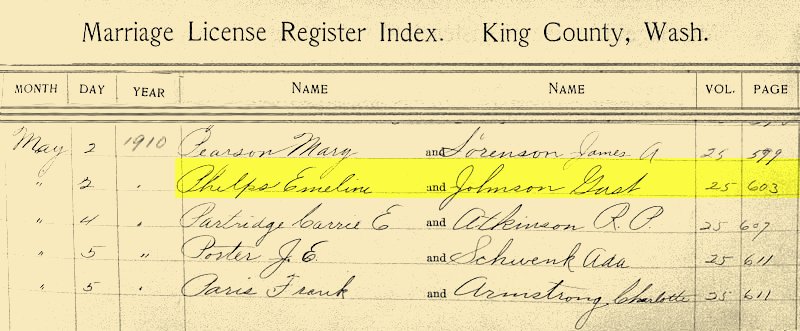 Marriage License Register Index. King County, Wash.
MONTH DAY YEAR NAME NAME VOL. PAGE
May 2 1910 Pearson Mary and Sorenson James A 25 599
" 2 " Phelps Emeline and Johnson Gust 25 603
" 4 " Partridge Carrie E and Atkinson R. P. 25 607
" 5 " Porter J. E and Schwenk Ada 25 611
" 5 " Paris Frank and Armstrong Charlotte 25 611